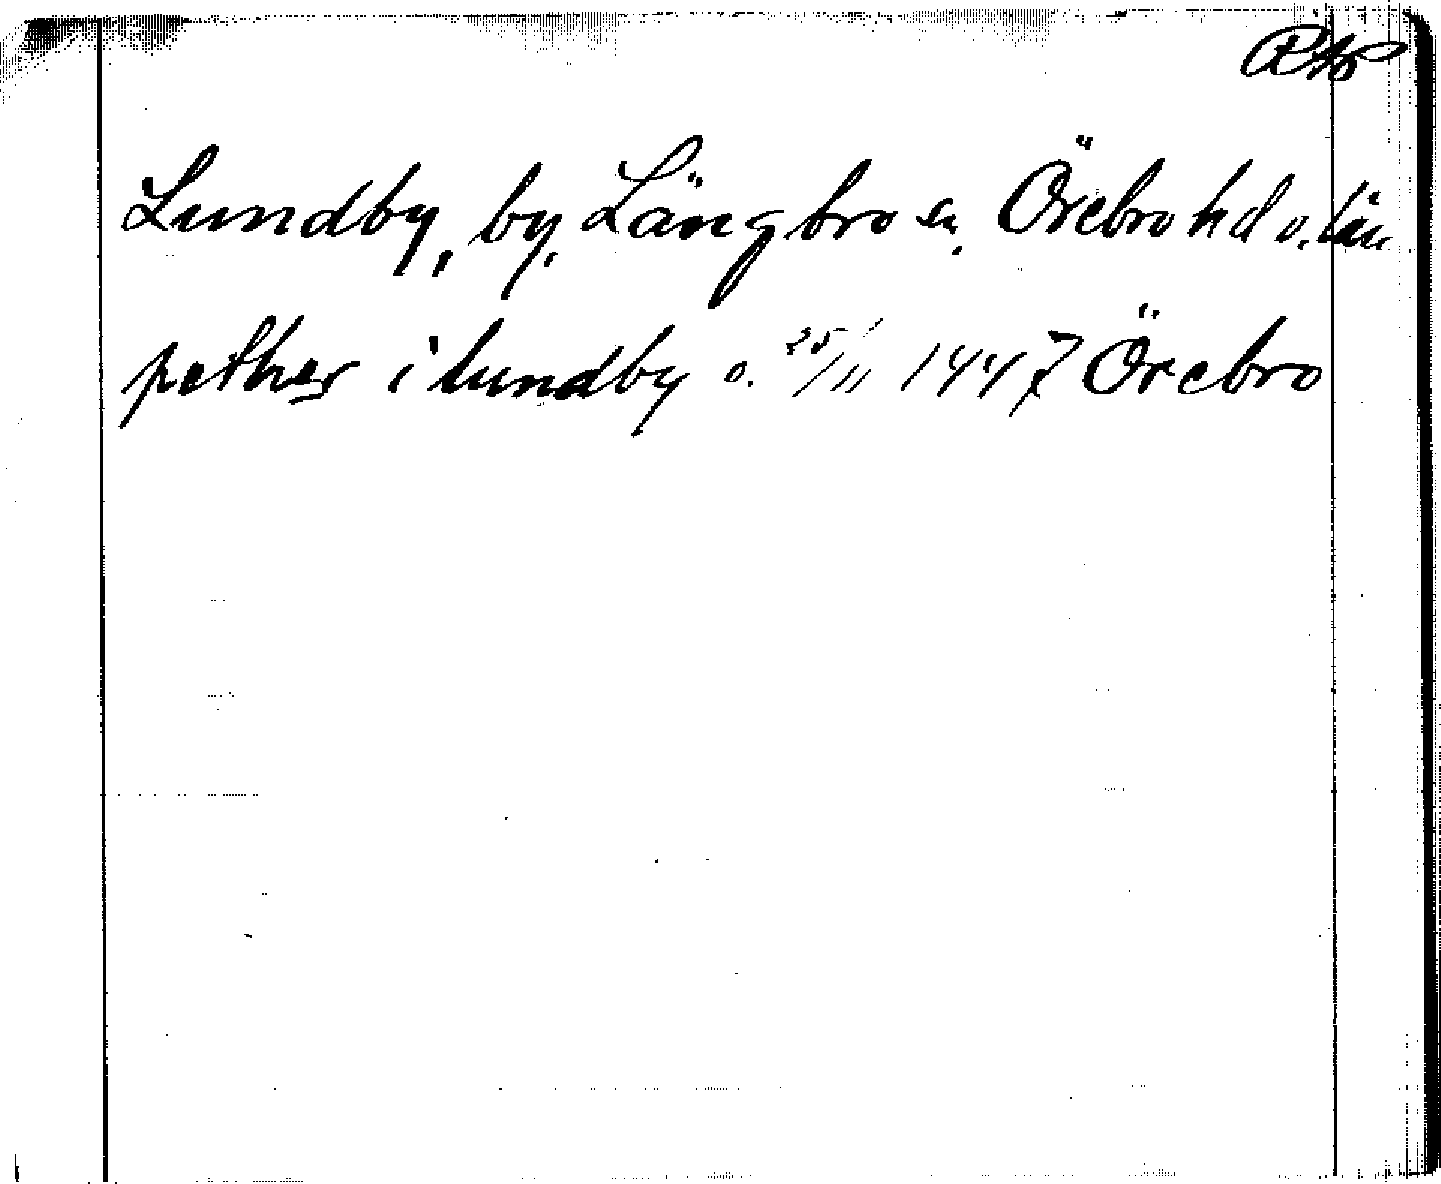 RAP
Lundby, by, Längbro sn, Örebro hd o. län
pether i lundby o. 25/11 1447 Örebro